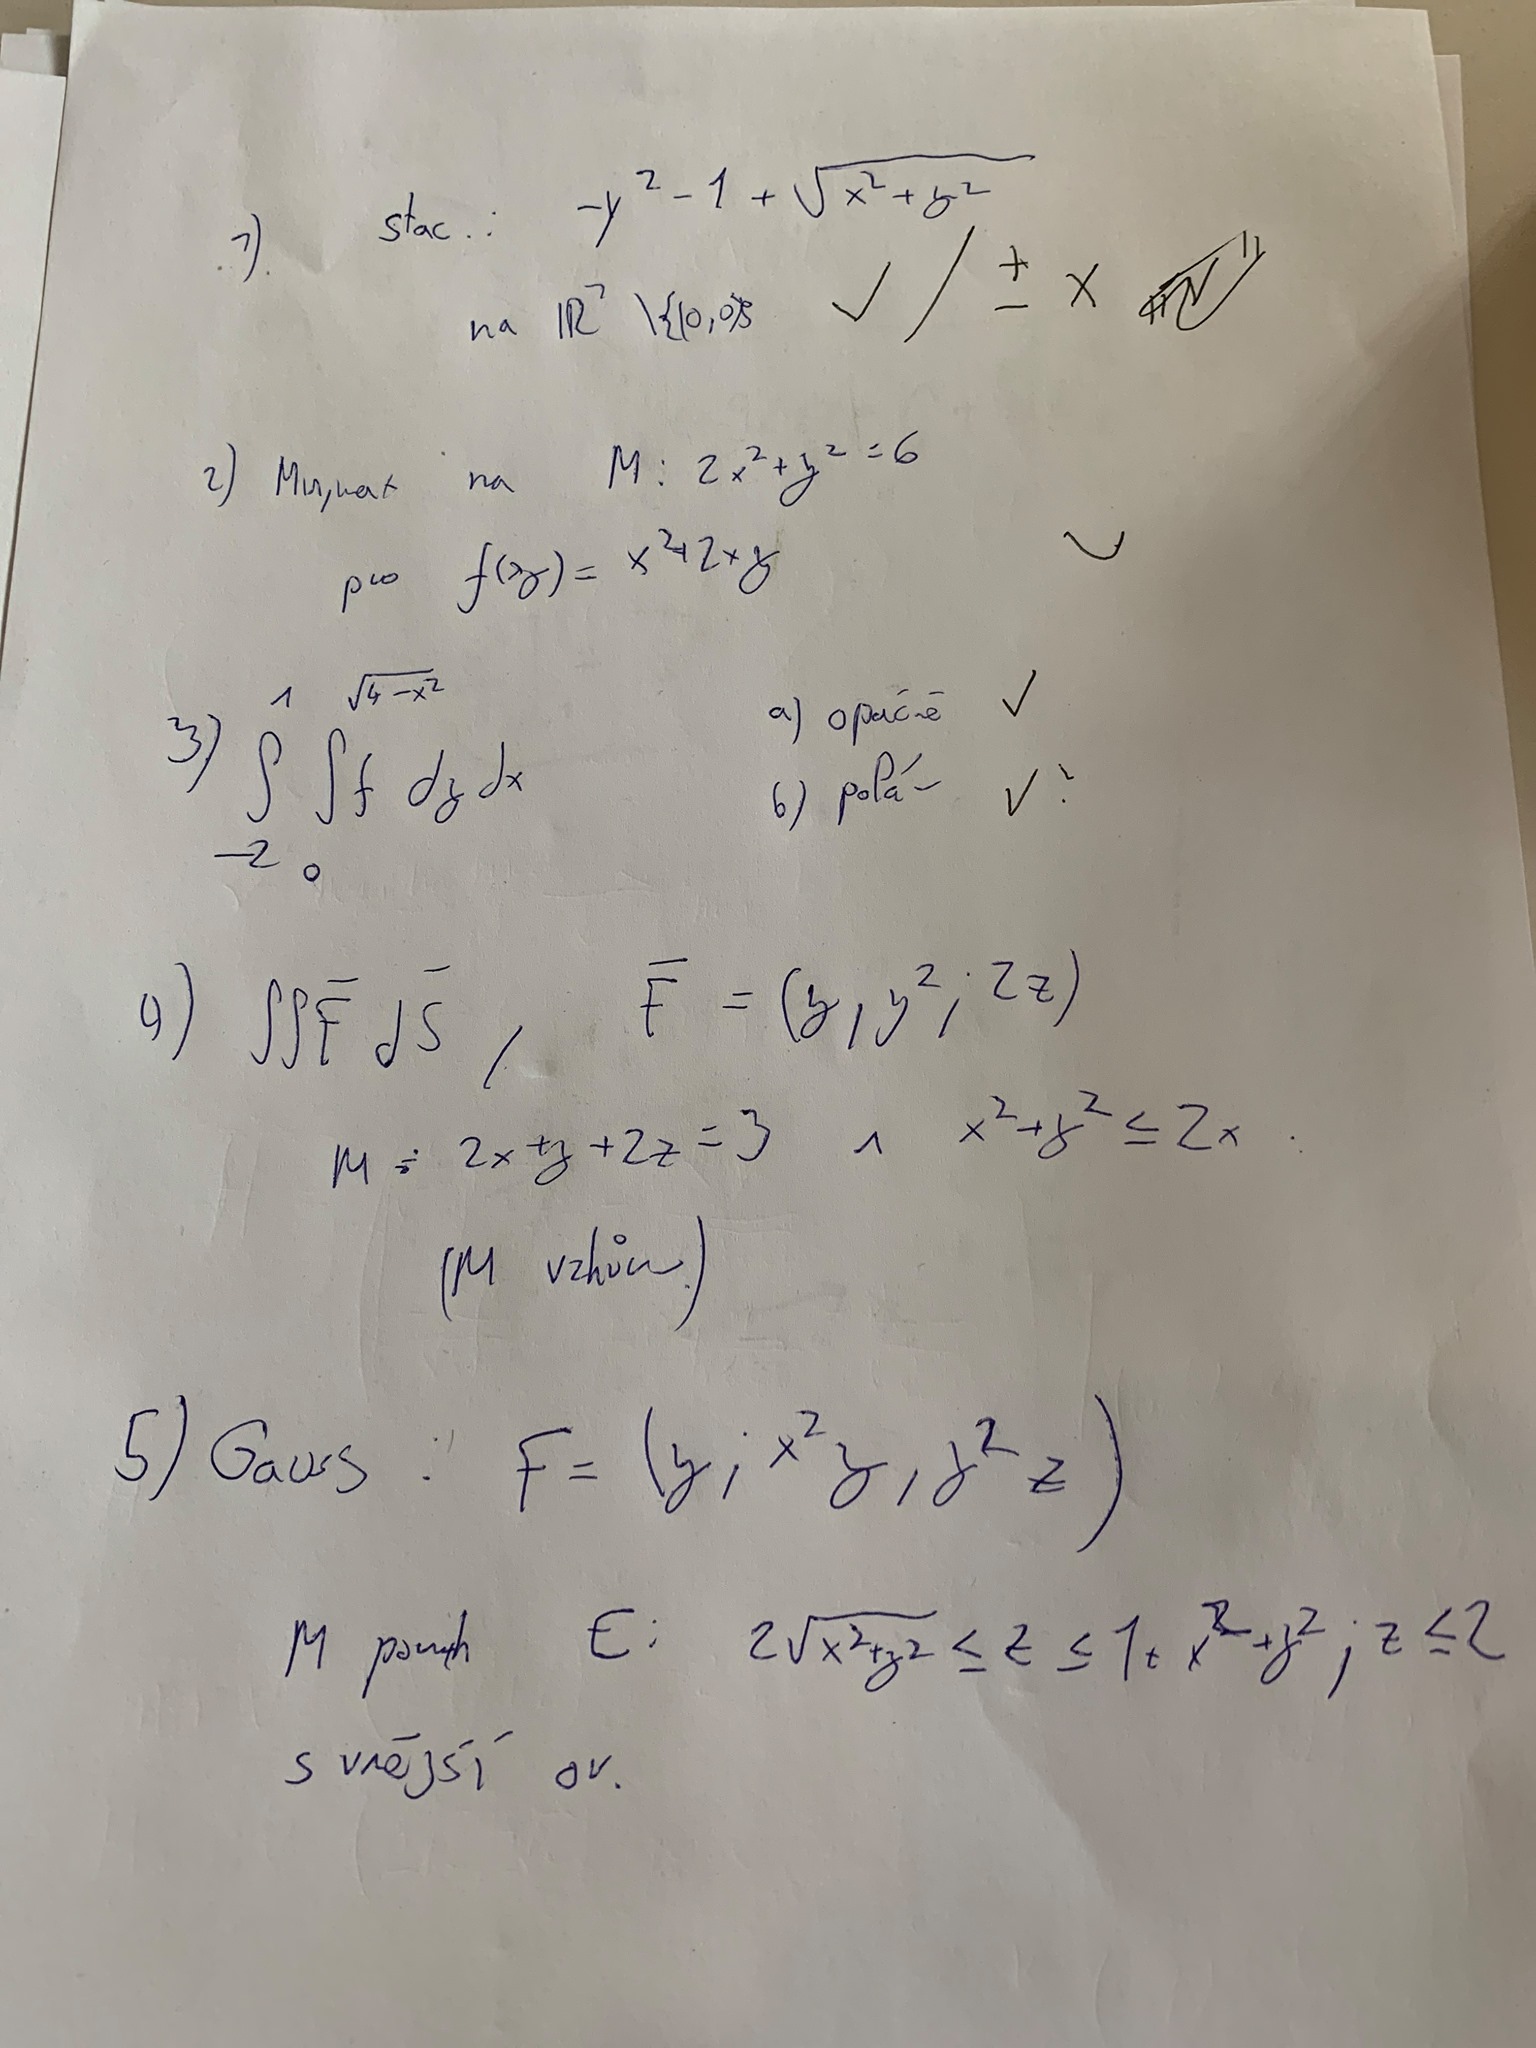 1) stac.: -y² - 1 + √(x² + y²)
na ℝ² \ {(0,0)} ✓ / ± x
2) Min, max na M: 2x² + y² = 6
pro f(x,y) = x² + 2xy ✓
3) ∫₋₂¹ ∫₀^√(4-x²) f dy dx
a) opačně ✓
b) polár ✓ ?
4) ∫∫ F̄ dS̄, F̄ = (y, y², 2z)
M: 2x + y + 2z = 3 ∧ x² + y² ≤ 2x.
(M vzhůru)
5) Gauss: F = (y, x²y, y²z)
M povrch E: 2√(x² + y²) ≤ z ≤ 1 + x² + y²; z ≤ 2
s vnější ov.